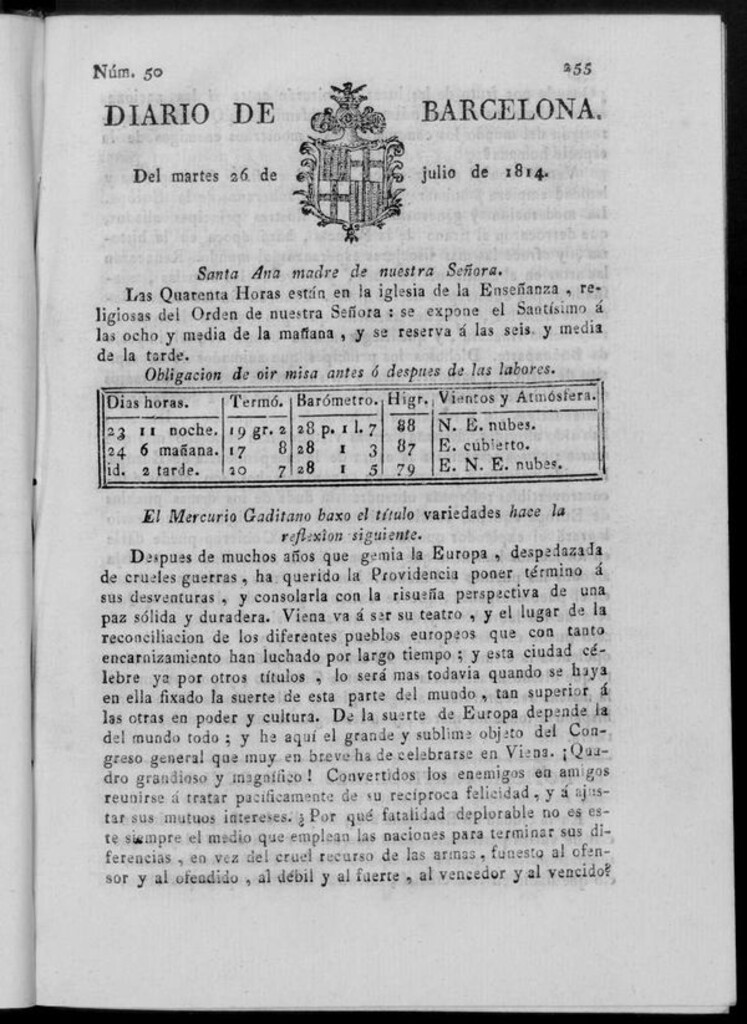 Núm. 50 255
DIARIO DE BARCELONA.
Del martes 26 de julio de 1814.
Santa Ana madre de nuestra Señora.
Las Quarenta Horas están en la iglesia de la Enseñanza, re-
ligiosas del Orden de nuestra Señora: se expone el Santísimo á
las ocho y media de la mañana, y se reserva á las seis y media
de la tarde.
Obligacion de oir misa antes ó despues de las labores.
Dias horas. Termó. Barómetro. Higr. Vientos y Atmósfera.
23 11 noche. 19 gr. 2 28 p. 1 l. 7 88 N. E. nubes.
24 6 mañana. 17 8 28 1 3 87 E. cubierto.
id. 2 tarde. 20 7 28 1 5 79 E. N. E. nubes.
El Mercurio Gaditano baxo el título variedades hace la
reflexîon siguiente.
Despues de muchos años que gemia la Europa, despedazada
de crueles guerras, ha querido la Providencia poner término á
sus desventuras, y consolarla con la risueña perspectiva de una
paz sólida y duradera. Viena va á ser su teatro, y el lugar de la
reconciliacion de los diferentes pueblos europeos que con tanto
encarnizamiento han luchado por largo tiempo; y esta ciudad cé-
lebre ya por otros títulos, lo será mas todavia quando se haya
en ella fixado la suerte de esta parte del mundo, tan superior á
las otras en poder y cultura. De la suerte de Europa depende la
del mundo todo; y he aquí el grande y sublime objeto del Con-
greso general que muy en breve ha de celebrarse en Viena. ¡Qua-
dro grandioso y magnífico! Convertidos los enemigos en amigos
reunirse á tratar pacíficamente de su recíproca felicidad, y á ajus-
tar sus mutuos intereses. ¿Por qué fatalidad deplorable no es es-
te siempre el medio que emplean las naciones para terminar sus di-
ferencias, en vez del cruel recurso de las armas, funesto al ofen-
sor y al ofendido, al débil y al fuerte, al vencedor y al vencido?